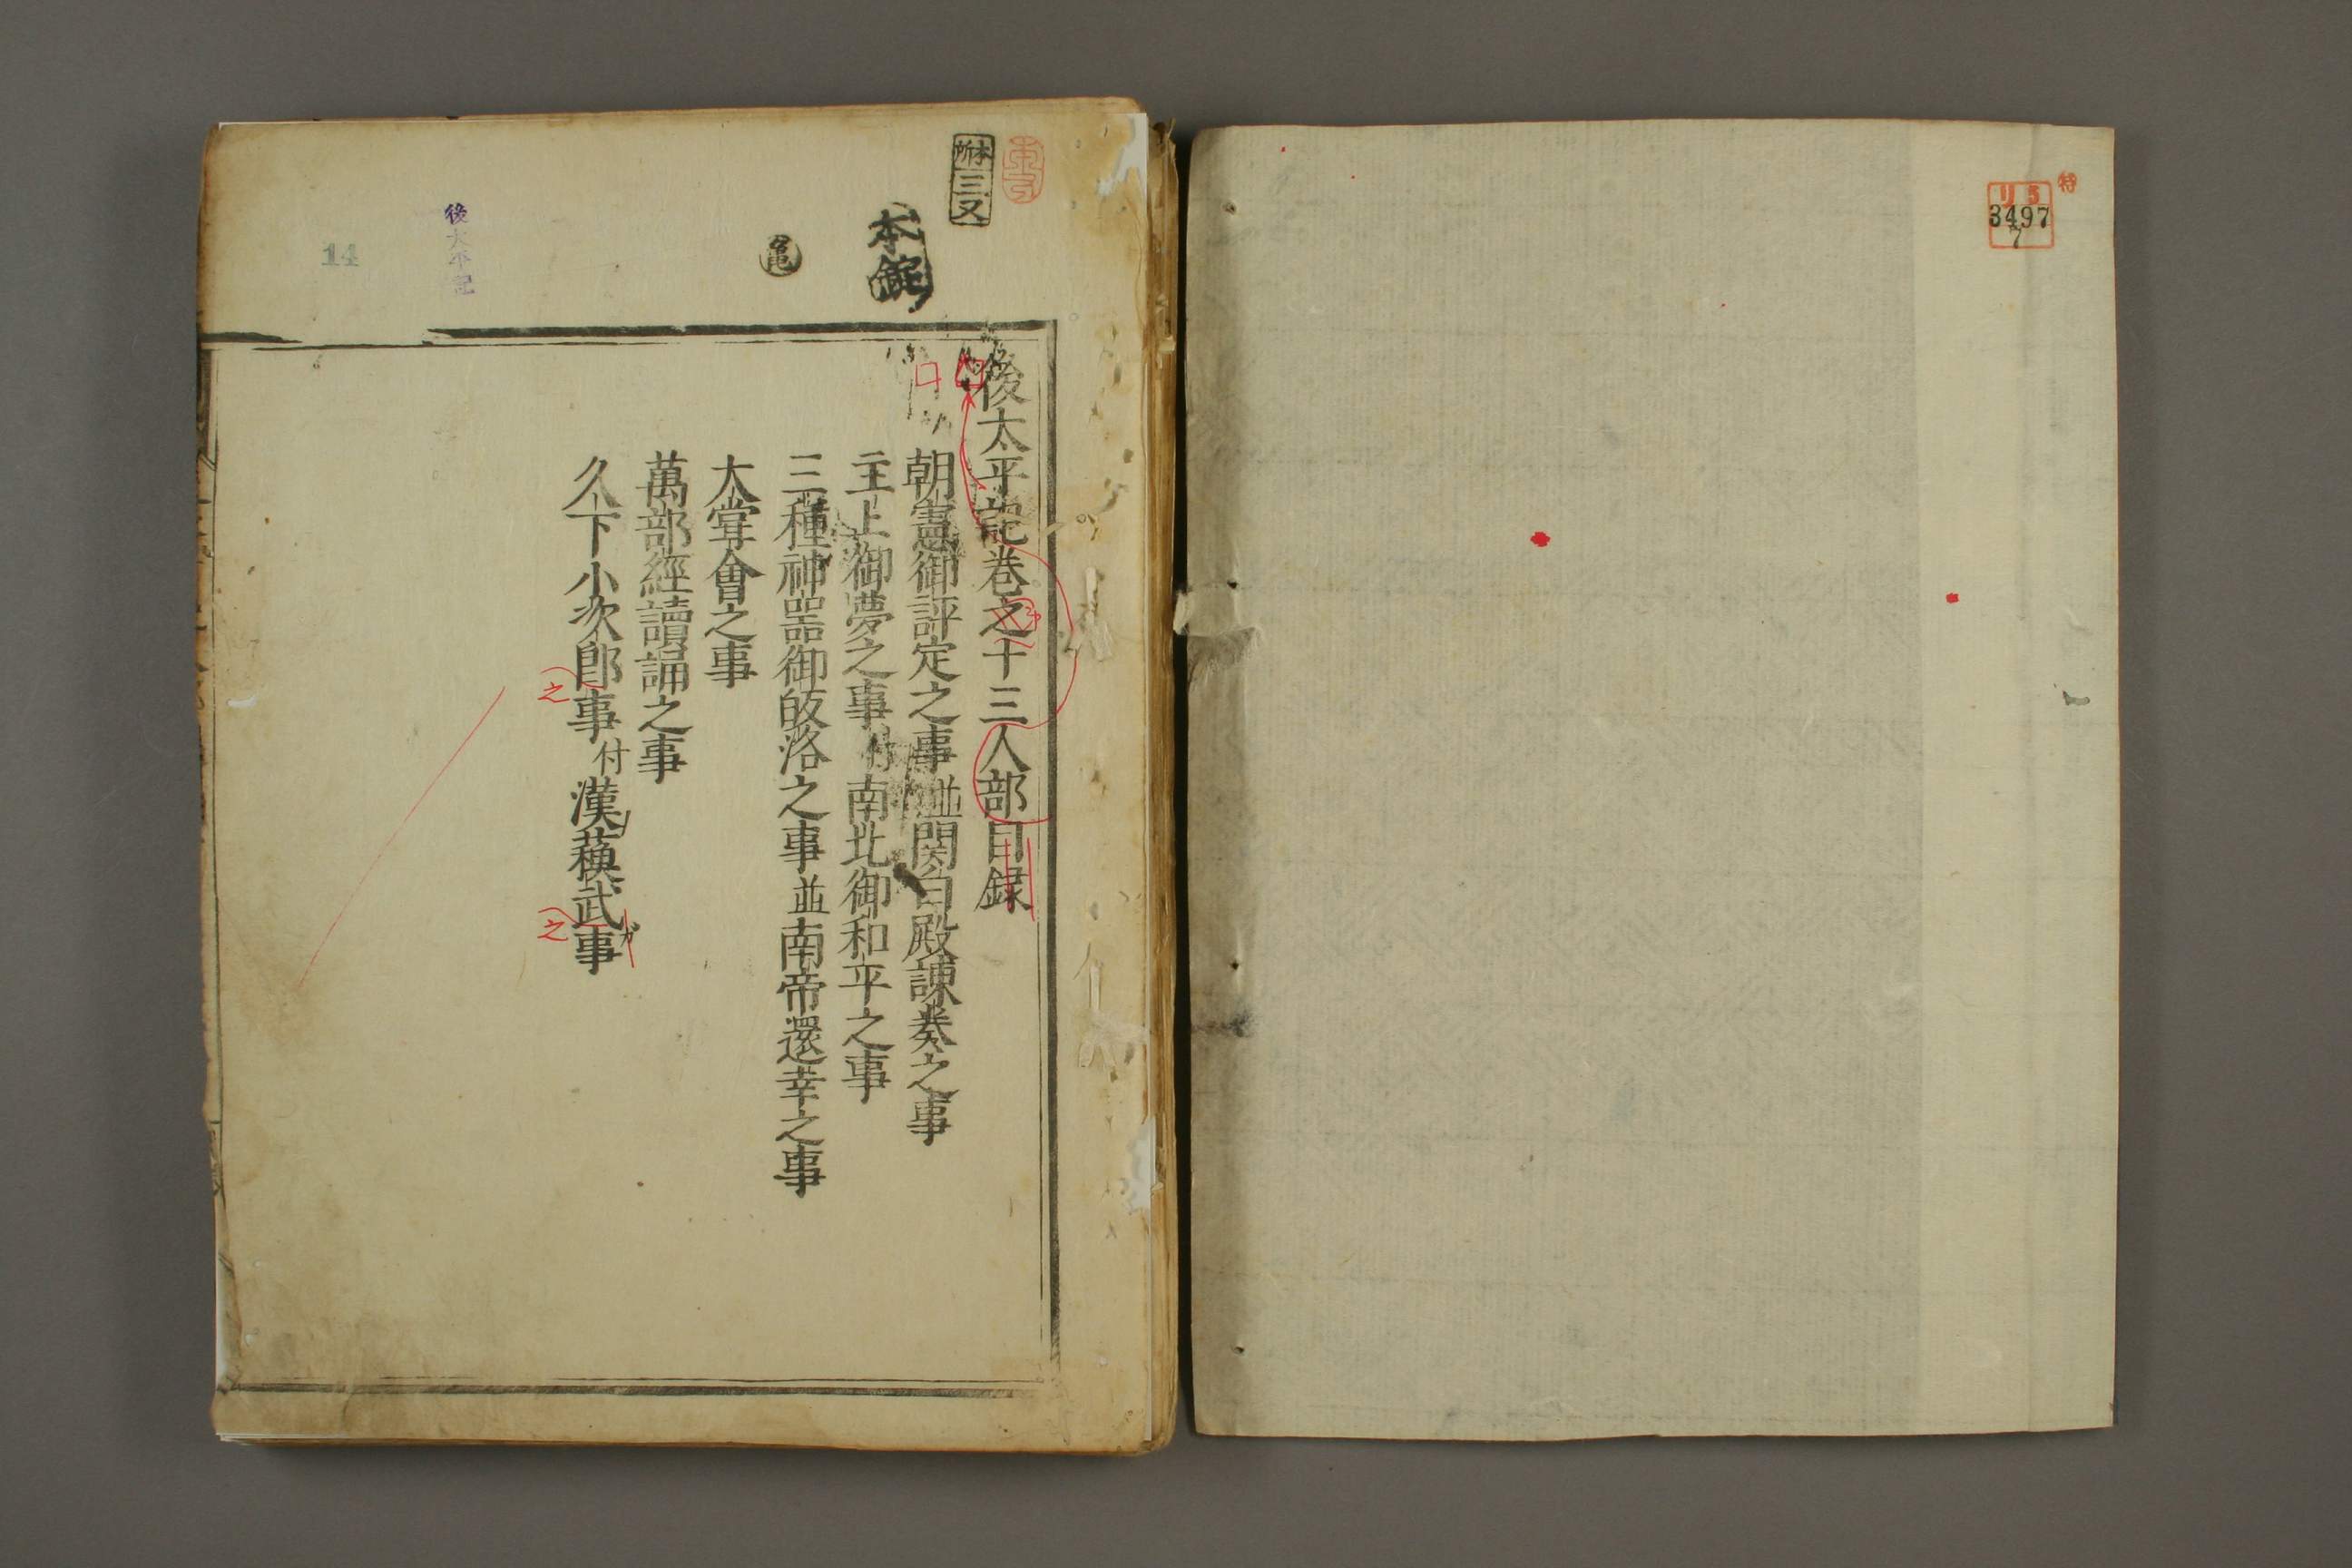 特
リ5
3497
7
本所
三又
本錠
亀
後太平記
14
後太平記巻之十三人部目録
朝憲御評定之事並関白殿諫奏之事
主上御夢之事付南北御和平之事
三種神器御皈洛之事並南帝還幸之事
大甞會之事
萬部經讀誦之事
久下小次郎事付漢蘓武ガ事
之
之